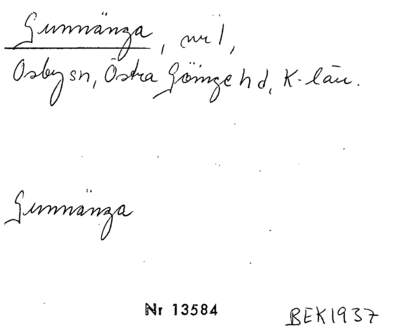 Gunnänga, nr 1,
Osby sn, Östra Göinge hd, K-län.
Gunnänga
Nr 13584
BEK1937